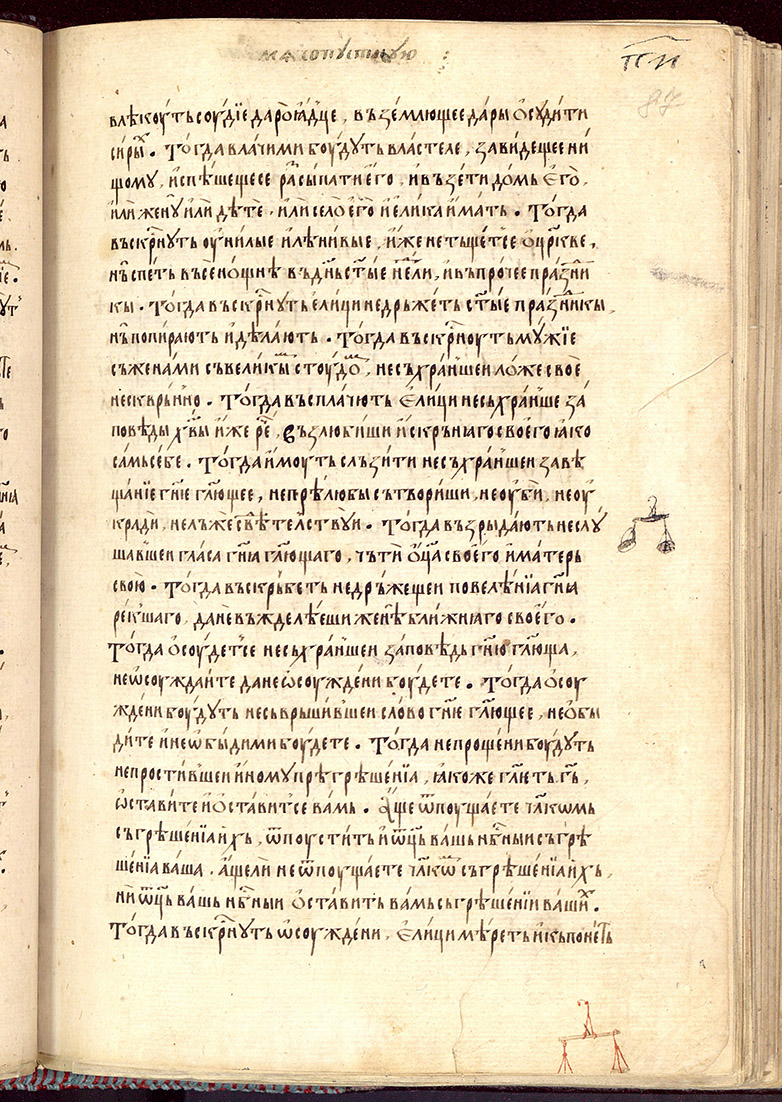 мѧсопустную
п҃и
87
влѣкоуть соудїе дароꙗдце, въземлющее дары ѡсудити
сирꙑⷯ. Тогда влачими боудуть властеле, завидещее ни
щому, и спѣшещесе расыпати его, и възети домь Его,
или жену или дѣте, или село его и елика имать. Тогда
въскрⸯнуть оунилые и лѣнивые, иже не тьщетсе ѡ црⸯкве,
нь спеть въсенощнѣ въ дн҃ь ст҃ые нⷣели, и въ прочее празⷣни
кы. Тогда въскрⸯнуть елици не дрьжеть ст҃ые празⷣникы,
нь попирають и дѣлають. Тогда въскрⸯноуть мужїе
съ женами съ великыⷨ стоудоⷨ, не съхраншеи ложе свое
нескврьнно. Тогда въсплачють Елици не сьхранше за
повѣды хв҃ы иже реⷱ, възлюбиши искрьнꙗго своего ꙗко
самь себе. Тогда имоуть сльзити не съхраншеи завѣ
щанїе гн҃ꙗ гл҃ющее, не прѣлюбы сътвориши, не оубїи, не оу
кради, не лъже свⷣѣтелствуи. Тогда възрыдають не слу
шавшеи гласа гн҃ꙗ гл҃ющаго, чьти ѡц҃а своего и матерь
свою. Тогда въскрьбеть не дръжещеи повелѣнїа гн҃ꙗ
рекшаго, да не въжделѣеши женѣ ближнꙗго своего.
Тогда ѡсоудетсе не сьхраншеи заповѣдь гн҃ю гл҃юща,
не ѡсоуждаите да не ѡсоуждени боудете. Тогда ѡсоу
ждени боудуть не сьврьшившеи слово гн҃їе гл҃ющее, не ѡбы
дите и не ѡбыдими боудете. Тогда непрощени боудуть
не простившеи иному прѣгрѣшенїа, ꙗкоже гл҃ѥть гь҃,
ѡставите и ѡставитсе вамь. Аще ѿпоущаете чл҃комь
съгрѣшенїа ихь, ѿпустить и ѿц҃ь вашь нб҃ныи съгрѣ
шенїа ваша. Аще ли не ѿпоущаете чл҃коⷨ съгрѣшенїа ихь,
ни ѿц҃ь вашь нб҃ныи ѡставить вамь сьгрѣшенїи вашиⷯ.
Тогда въскрⸯнуть ѡсоуждени, Елици мⸯреть никъ понеть